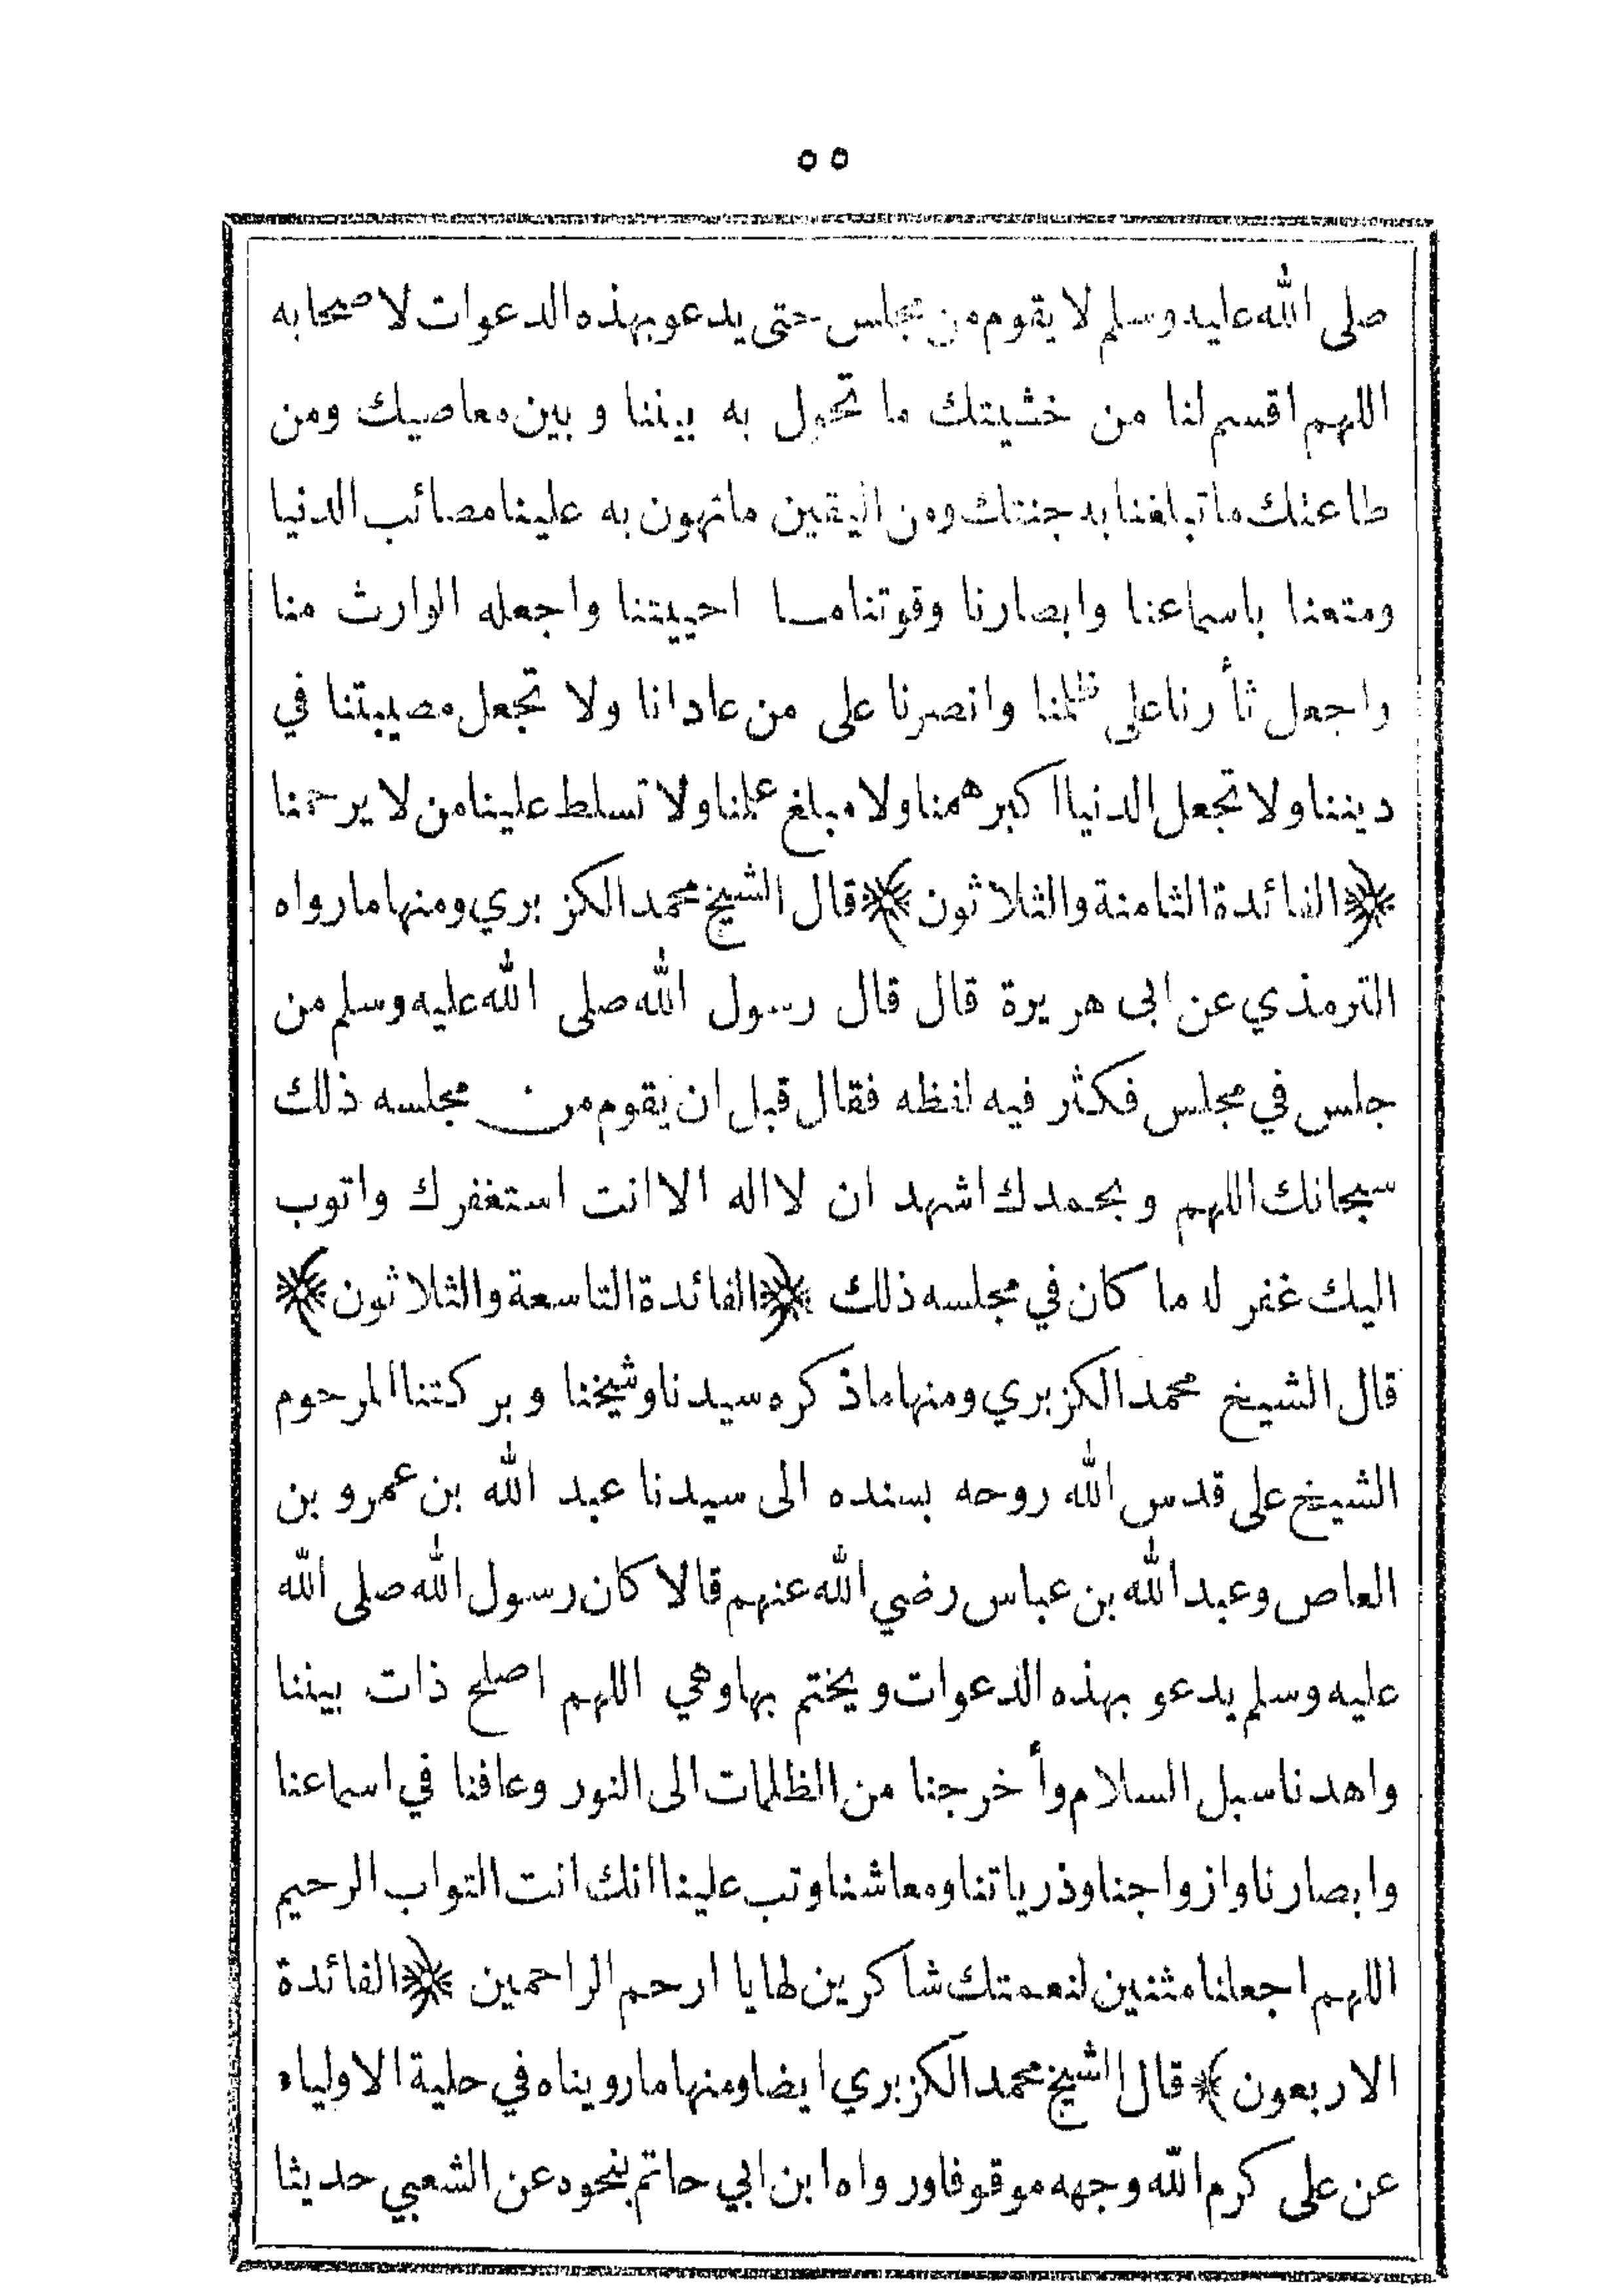 ٥٥
صلى الله عليه وسلم لا يقوم من مجلس حتى يدعو بهذه الدعوات لاصحابه
اللهم اقسم لنا من خشيتك ما تحول به بيننا و بين معاصيك ومن
طاعتك ما تبلغنا به جنتك ومن اليقين ما تهون به علينا مصائب الدنيا
ومتعنا باسماعنا وابصارنا وقوتنا مــا احييتنا واجعله الوارث منا
واجعل ثأرنا على من ظلمنا وانصرنا على من عادانا ولا تجعل مصيبتنا في
ديننا ولا تجعل الدنيا اكبر همنا ولا مبلغ علمنا ولا تسلط علينا من لا يرحمنا
﴿الفائدة الثامنة والثلاثون﴾ قال الشيخ محمد الكزبري ومنها ما رواه
الترمذي عن ابى هريرة قال قال رسول الله صلى الله عليه وسلم من
جلس في مجلس فكثر فيه لغظه فقال قبل ان يقوم من مجلسه ذلك
سبحانك اللهم وبحمدك اشهد ان لا اله الا انت استغفرك واتوب
اليك غفر له ما كان في مجلسه ذلك ﴿الفائدة التاسعة والثلاثون﴾
قال الشيخ محمد الكزبري ومنها ما ذكره سيدنا وشيخنا وبركتنا المرحوم
الشيخ على قدس الله روحه بسنده الى سيدنا عبد الله بن عمرو بن
العاص وعبد الله بن عباس رضي الله عنهم قالا كان رسول الله صلى الله
عليه وسلم يدعو بهذه الدعوات ويختم بها وهي اللهم اصلح ذات بيننا
واهدنا سبل السلام وأخرجنا من الظلمات الى النور وعافنا في اسماعنا
وابصارنا وازواجنا وذرياتنا ومعاشنا وتب علينا انك انت التواب الرحيم
اللهم اجعلنا مثنين لنعمتك شاكرين لها يا ارحم الراحمين ﴿الفائدة
الاربعون﴾ قال الشيخ محمد الكزبري ايضا ومنها ما رويناه في حلية الاولياء
عن على كرم الله وجهه موقوفا ورواه ابن ابي حاتم بنحوه عن الشعبي حديثا